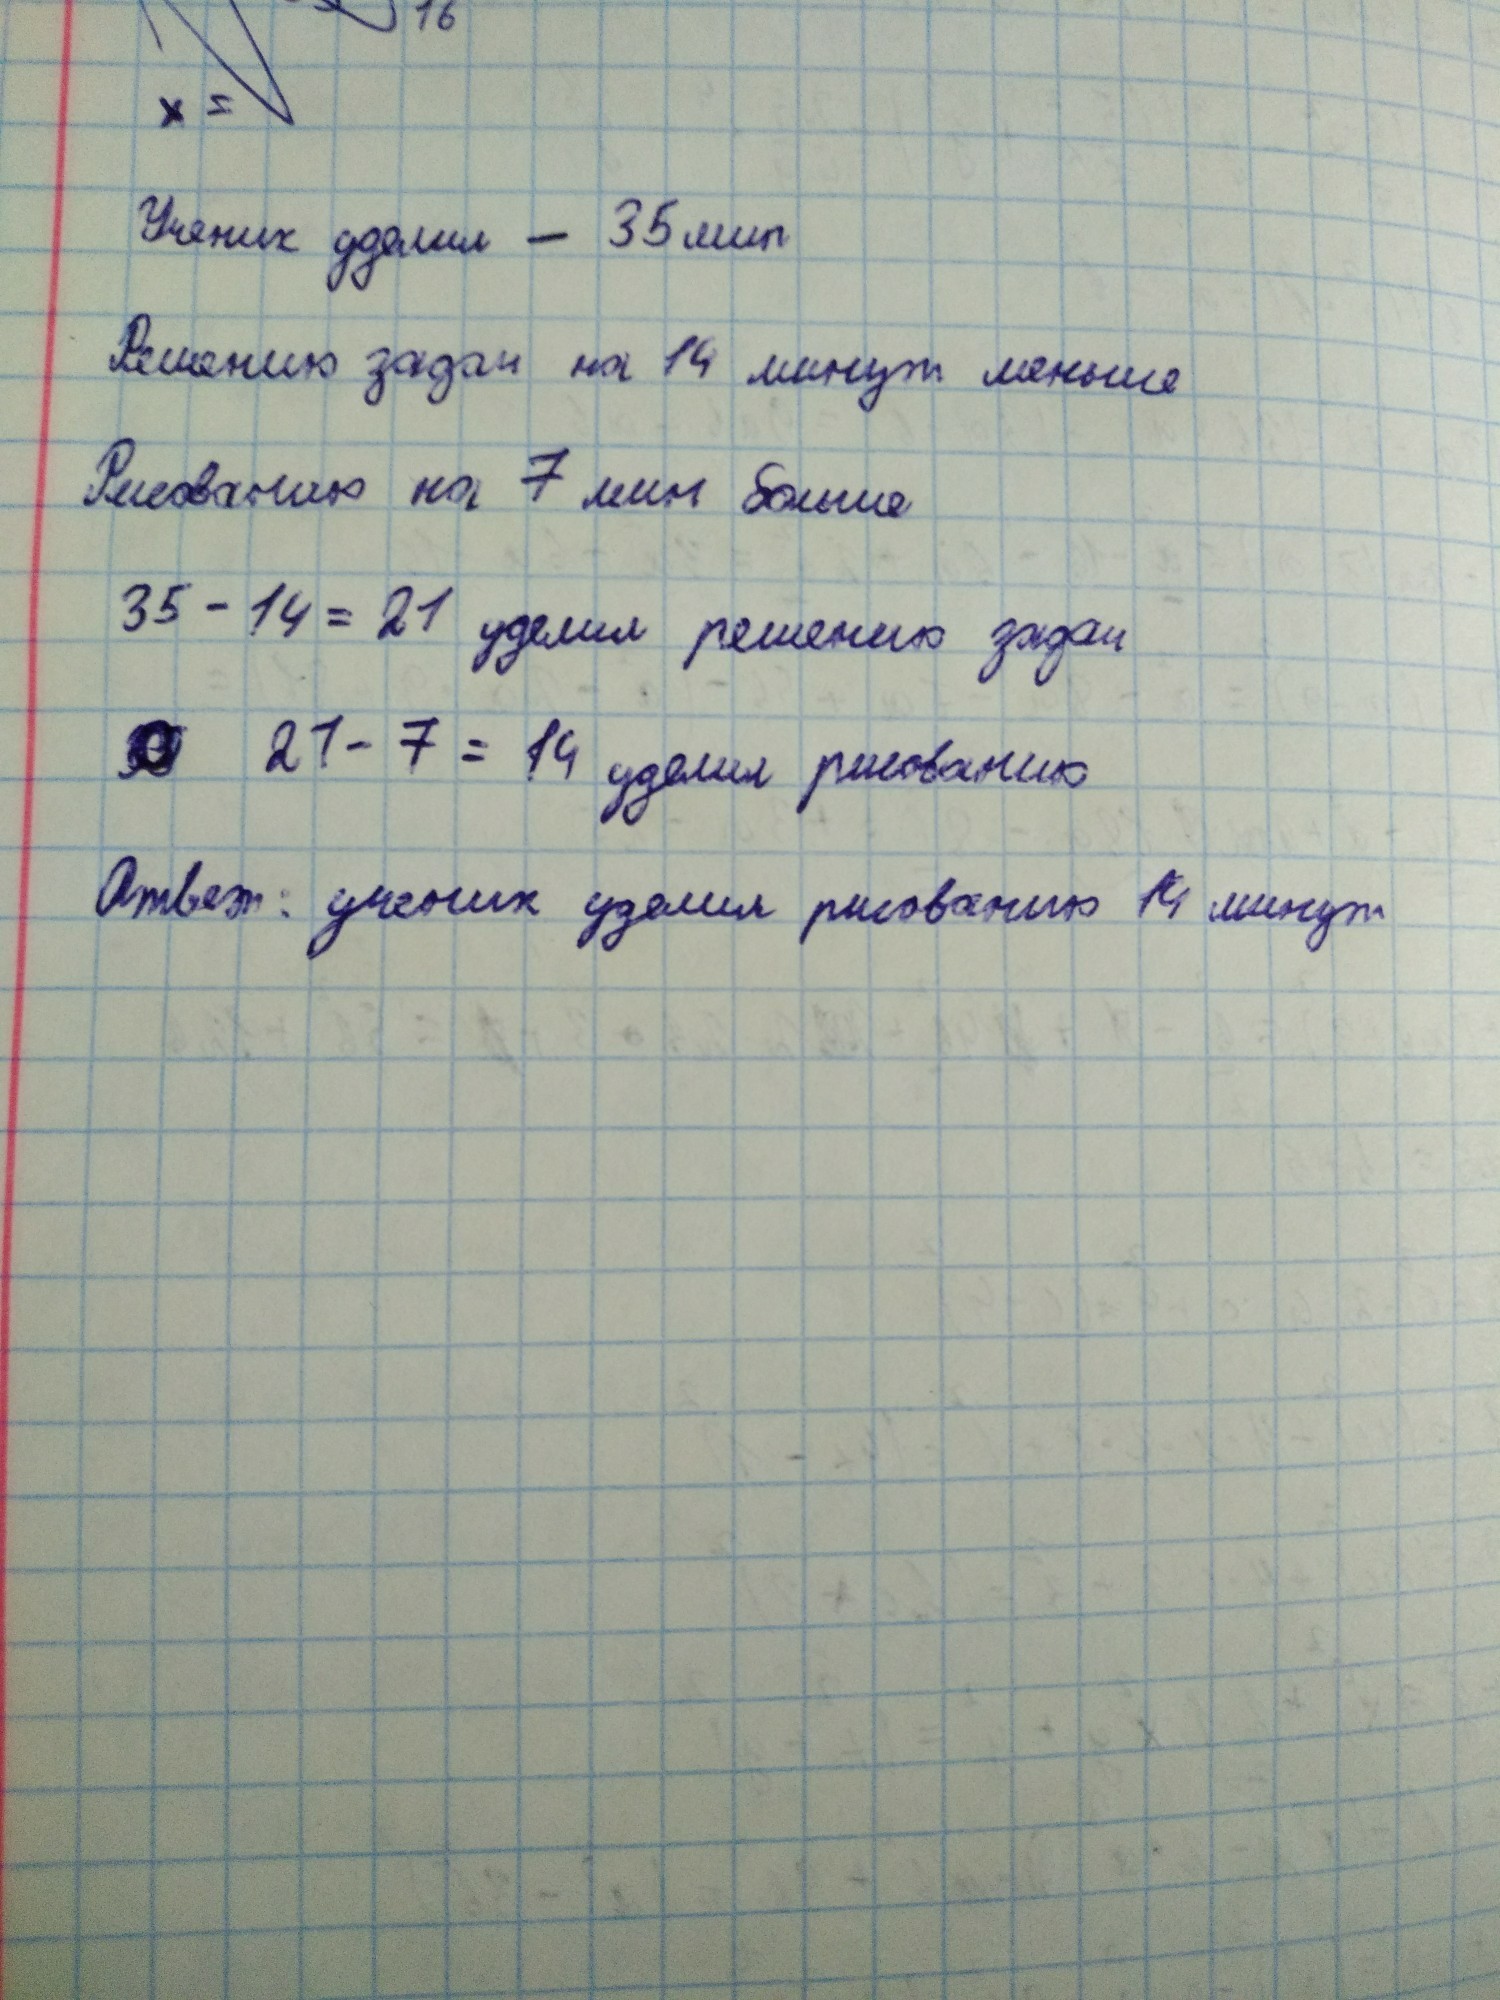 16
x =
Ученик уделил – 35 мин
Решению задач на 14 минут меньше
Рисованию на 7 мин больше
35 - 14 = 21 уделил решению задач
21 - 7 = 14 уделил рисованию
Ответ: ученик уделил рисованию 14 минут